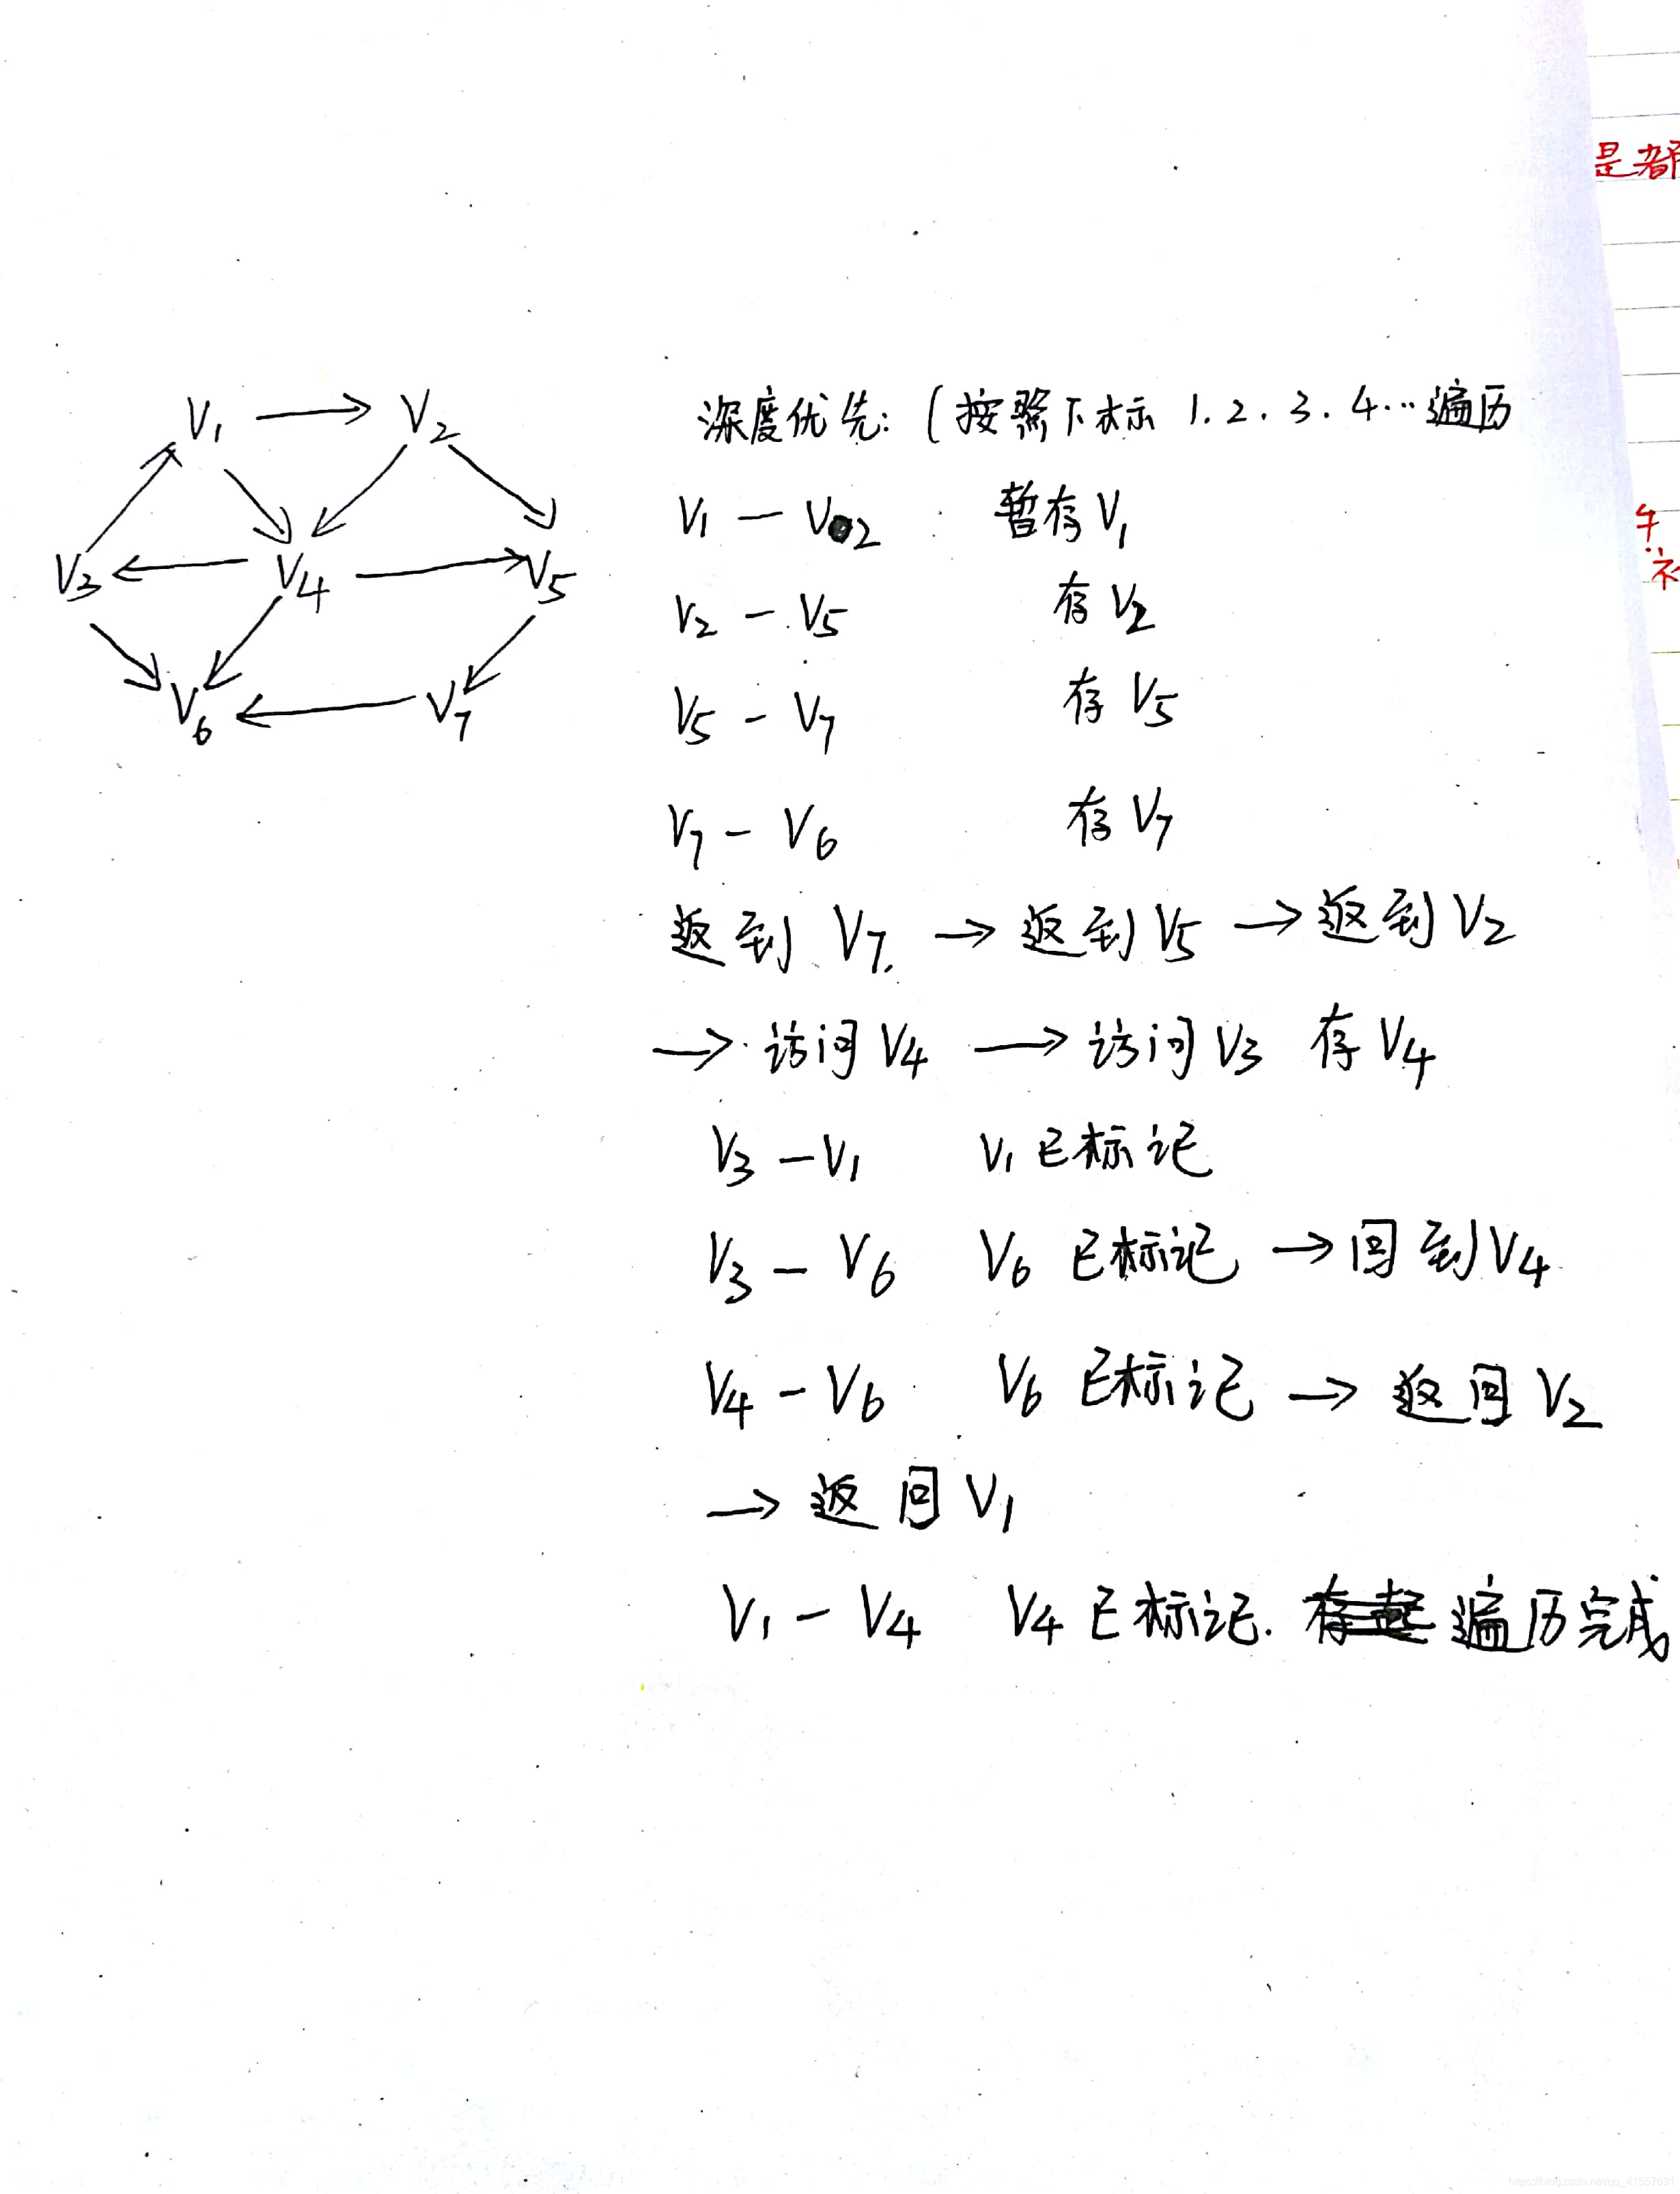 V1 V2
V3 V4 V5
V6 V7
深度优先:(按照下标 1.2.3.4…遍历
V1 — V2 暂存V1
V2 — V5 存V2
V5 — V7 存V5
V7 — V6 存V7
返到 V7. → 返到V5 → 返到V2
→ 访问V4 → 访问V3 存V4
V3 — V1 V1已标记
V3 — V6 V6已标记 → 回到V4
V4 — V6 V6已标记 → 返回V2
→ 返回V1
V1 — V4 V4已标记. 遍历完成
是都
https://blog.csdn.net/qq_41557631